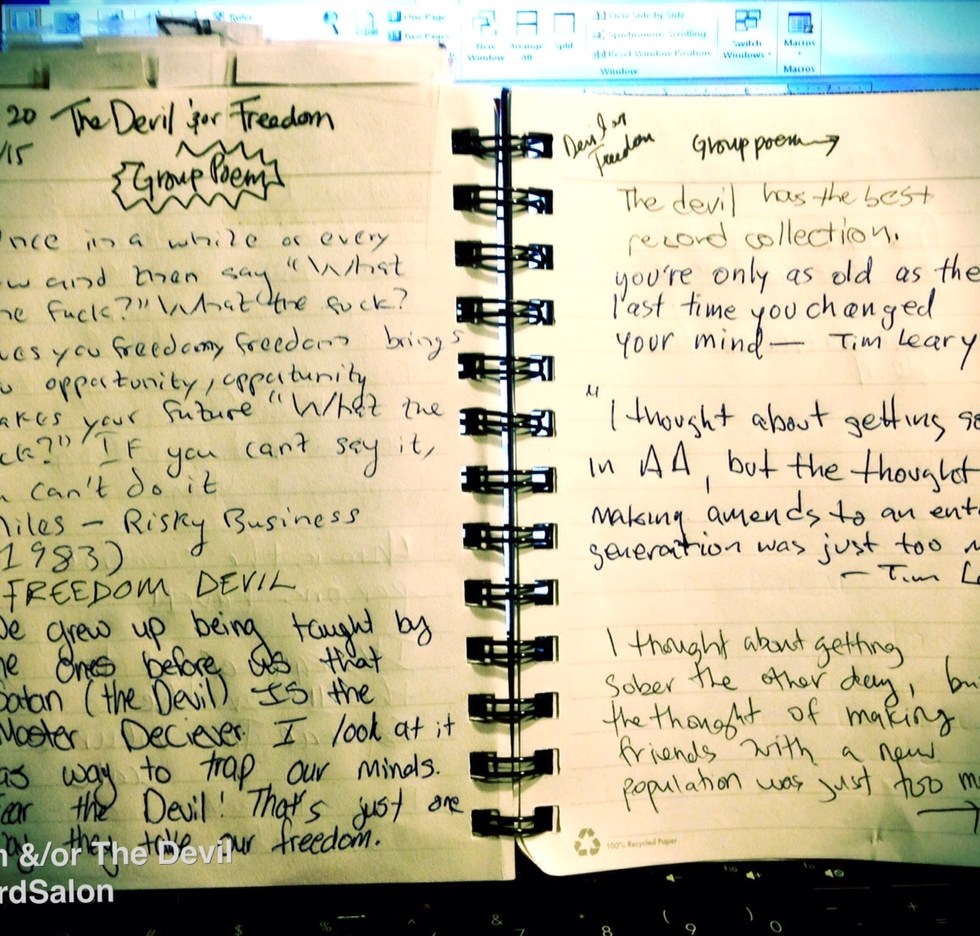 One Page
Two Pages
New Window
Arrange All
Split
View Side by Side
Synchronous Scrolling
Reset Window Position
Window
Switch Windows
Macros
Macros
20 The Devil &/or Freedom
/15
Group Poem
nce in a while or every
w and then say "What
he Fuck?" What the fuck?
ves you freedom, freedom brings
u opportunity, opportunity
akes your future "What the
ck?" If you can't say it,
u can't do it
Miles - Risky Business
(1983)
FREEDOM DEVIL
We grew up being taught by
he ones before us that
Satan (the Devil) IS the
Master Deciever. I look at it
as way to trap our minds.
ear the Devil! That's just one
way they take our freedom.
n &/or The Devil
rdSalon
Devil or
Freedom
Group poem →
The devil has the best
record collection.
you're only as old as the
last time you changed
your mind — Tim Leary
"I thought about getting so
in AA, but the thought
making amends to an ent
generation was just too m
- Tim L
I thought about getting
sober the other day, bu
the thought of making
friends with a new
population was just too m
→
100% Recycled Paper
$ % ^ & 7 8 ( 9 ) 0 - + =